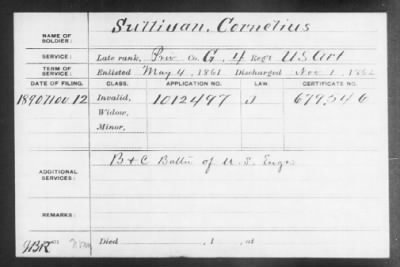 NAME OF SOLDIER: Sullivan, Cornelius
SERVICE: Late rank, Priv Co. G, 4 Reg't US Art
TERM OF SERVICE: Enlisted May 4, 1861 Discharged Nov. 1, 186
DATE OF FILING. CLASS. APPLICATION NO. LAW. CERTIFICATE NO.
1890 Nov 12 Invalid, 1012497 679546
Widow,
Minor,
ADDITIONAL SERVICES: B + C Battn of U.S. Engs
REMARKS:
Died , 1 , at